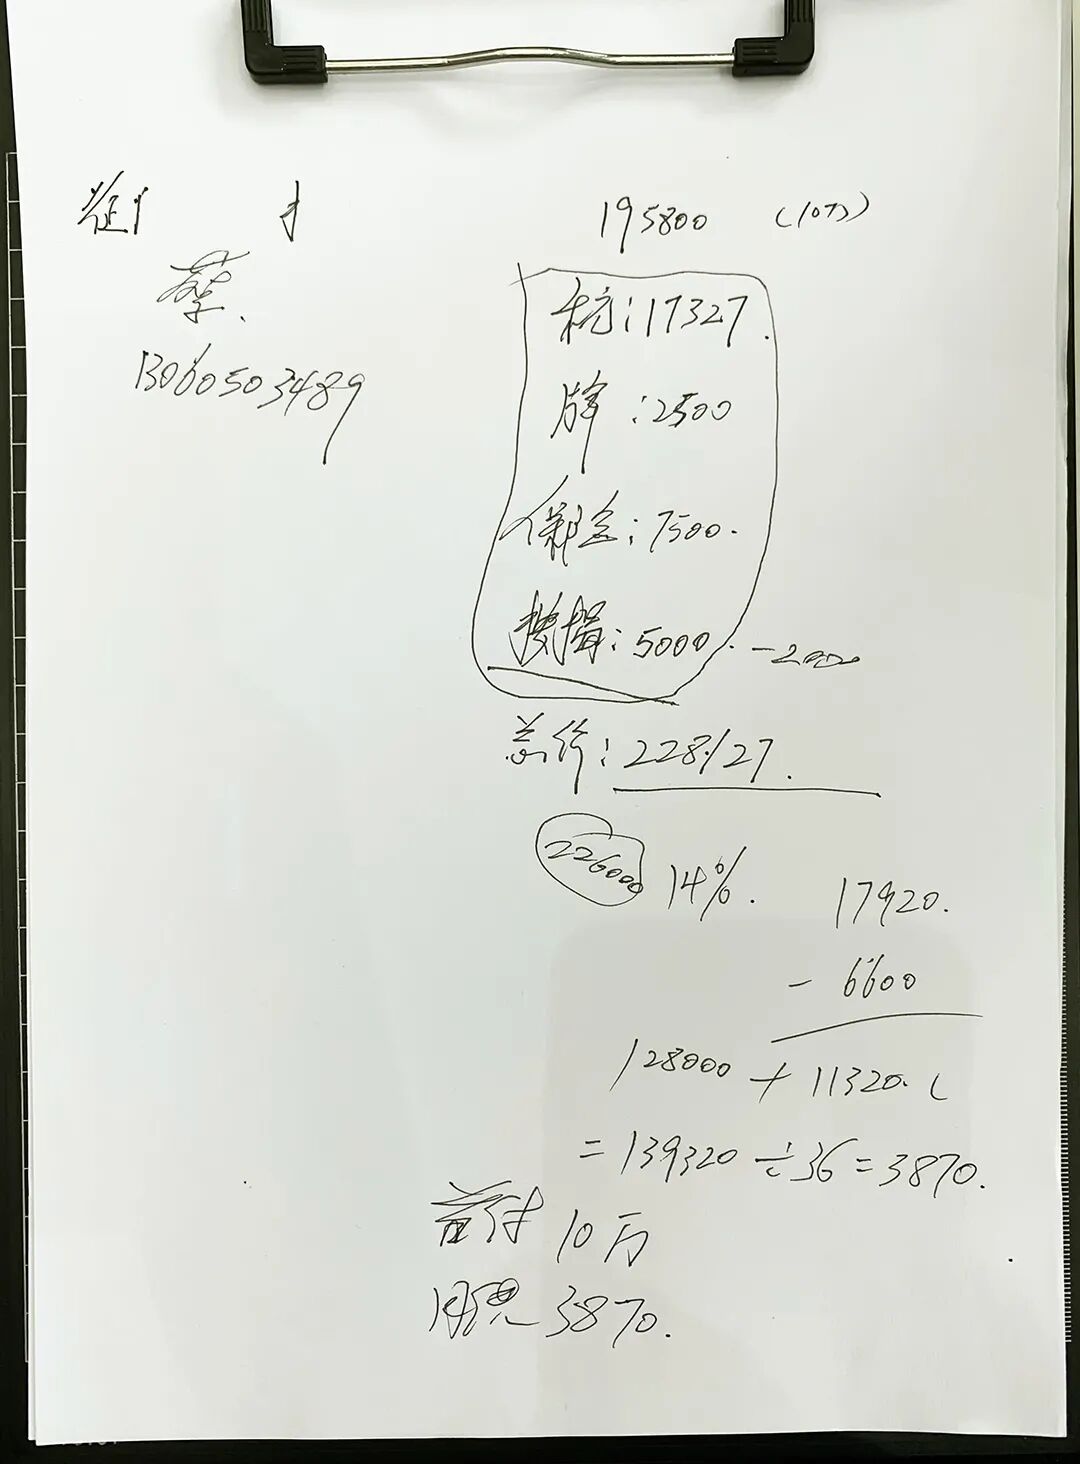 蔡.
13060503489
195800 (10万)
税:17327.
牌:2500
保险:7500.
按揭:5000. -2000
总价:228127.
226000 14%. 17920.
- 6600
128000 + 11320. (
= 139320 ÷ 36 = 3870.
首付 10万
月还 3870.